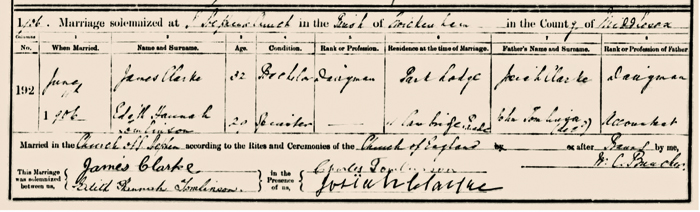 1906. Marriage solemnized at St Stephens Church in the Parish of Twickenham in the County of Middlesex
No. When Married. Name and Surname. Age. Condition. Rank or Profession. Residence at the time of Marriage. Father's Name and Surname. Rank or Profession of Father
192 June James Clarke 32 Bachelor Dairyman Park Lodge Josiah Clarke Dairyman
1906 Edith Hannah Tomlinson 20 Spinster — Cambridge Park John Tomlinson Accountant
Married in the Church St Stephen according to the Rites and Ceremonies of the Church of England by or after Banns by me,
This Marriage was solemnized between us, James Clarke in the Presence of us, Charles Tomlinson
Edith Hannah Tomlinson Josiah Clarke